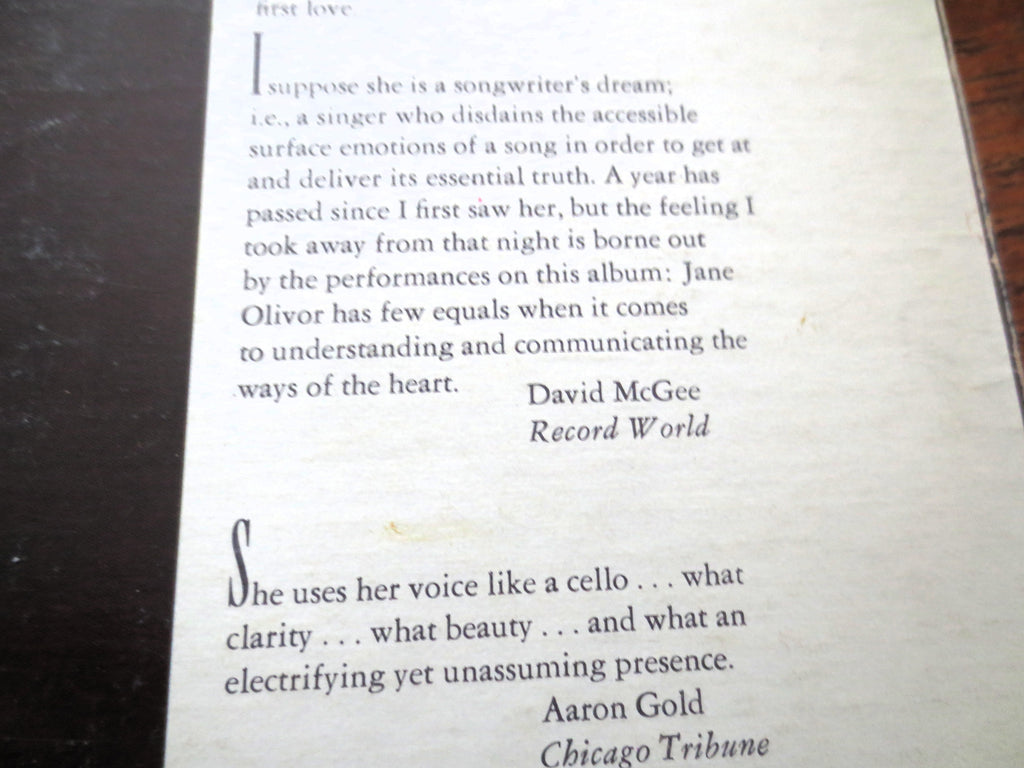 first love
I suppose she is a songwriter's dream;
i.e., a singer who disdains the accessible
surface emotions of a song in order to get at
and deliver its essential truth. A year has
passed since I first saw her, but the feeling I
took away from that night is borne out
by the performances on this album: Jane
Olivor has few equals when it comes
to understanding and communicating the
ways of the heart.
David McGee
Record World
She uses her voice like a cello . . . what
clarity . . . what beauty . . . and what an
electrifying yet unassuming presence.
Aaron Gold
Chicago Tribune